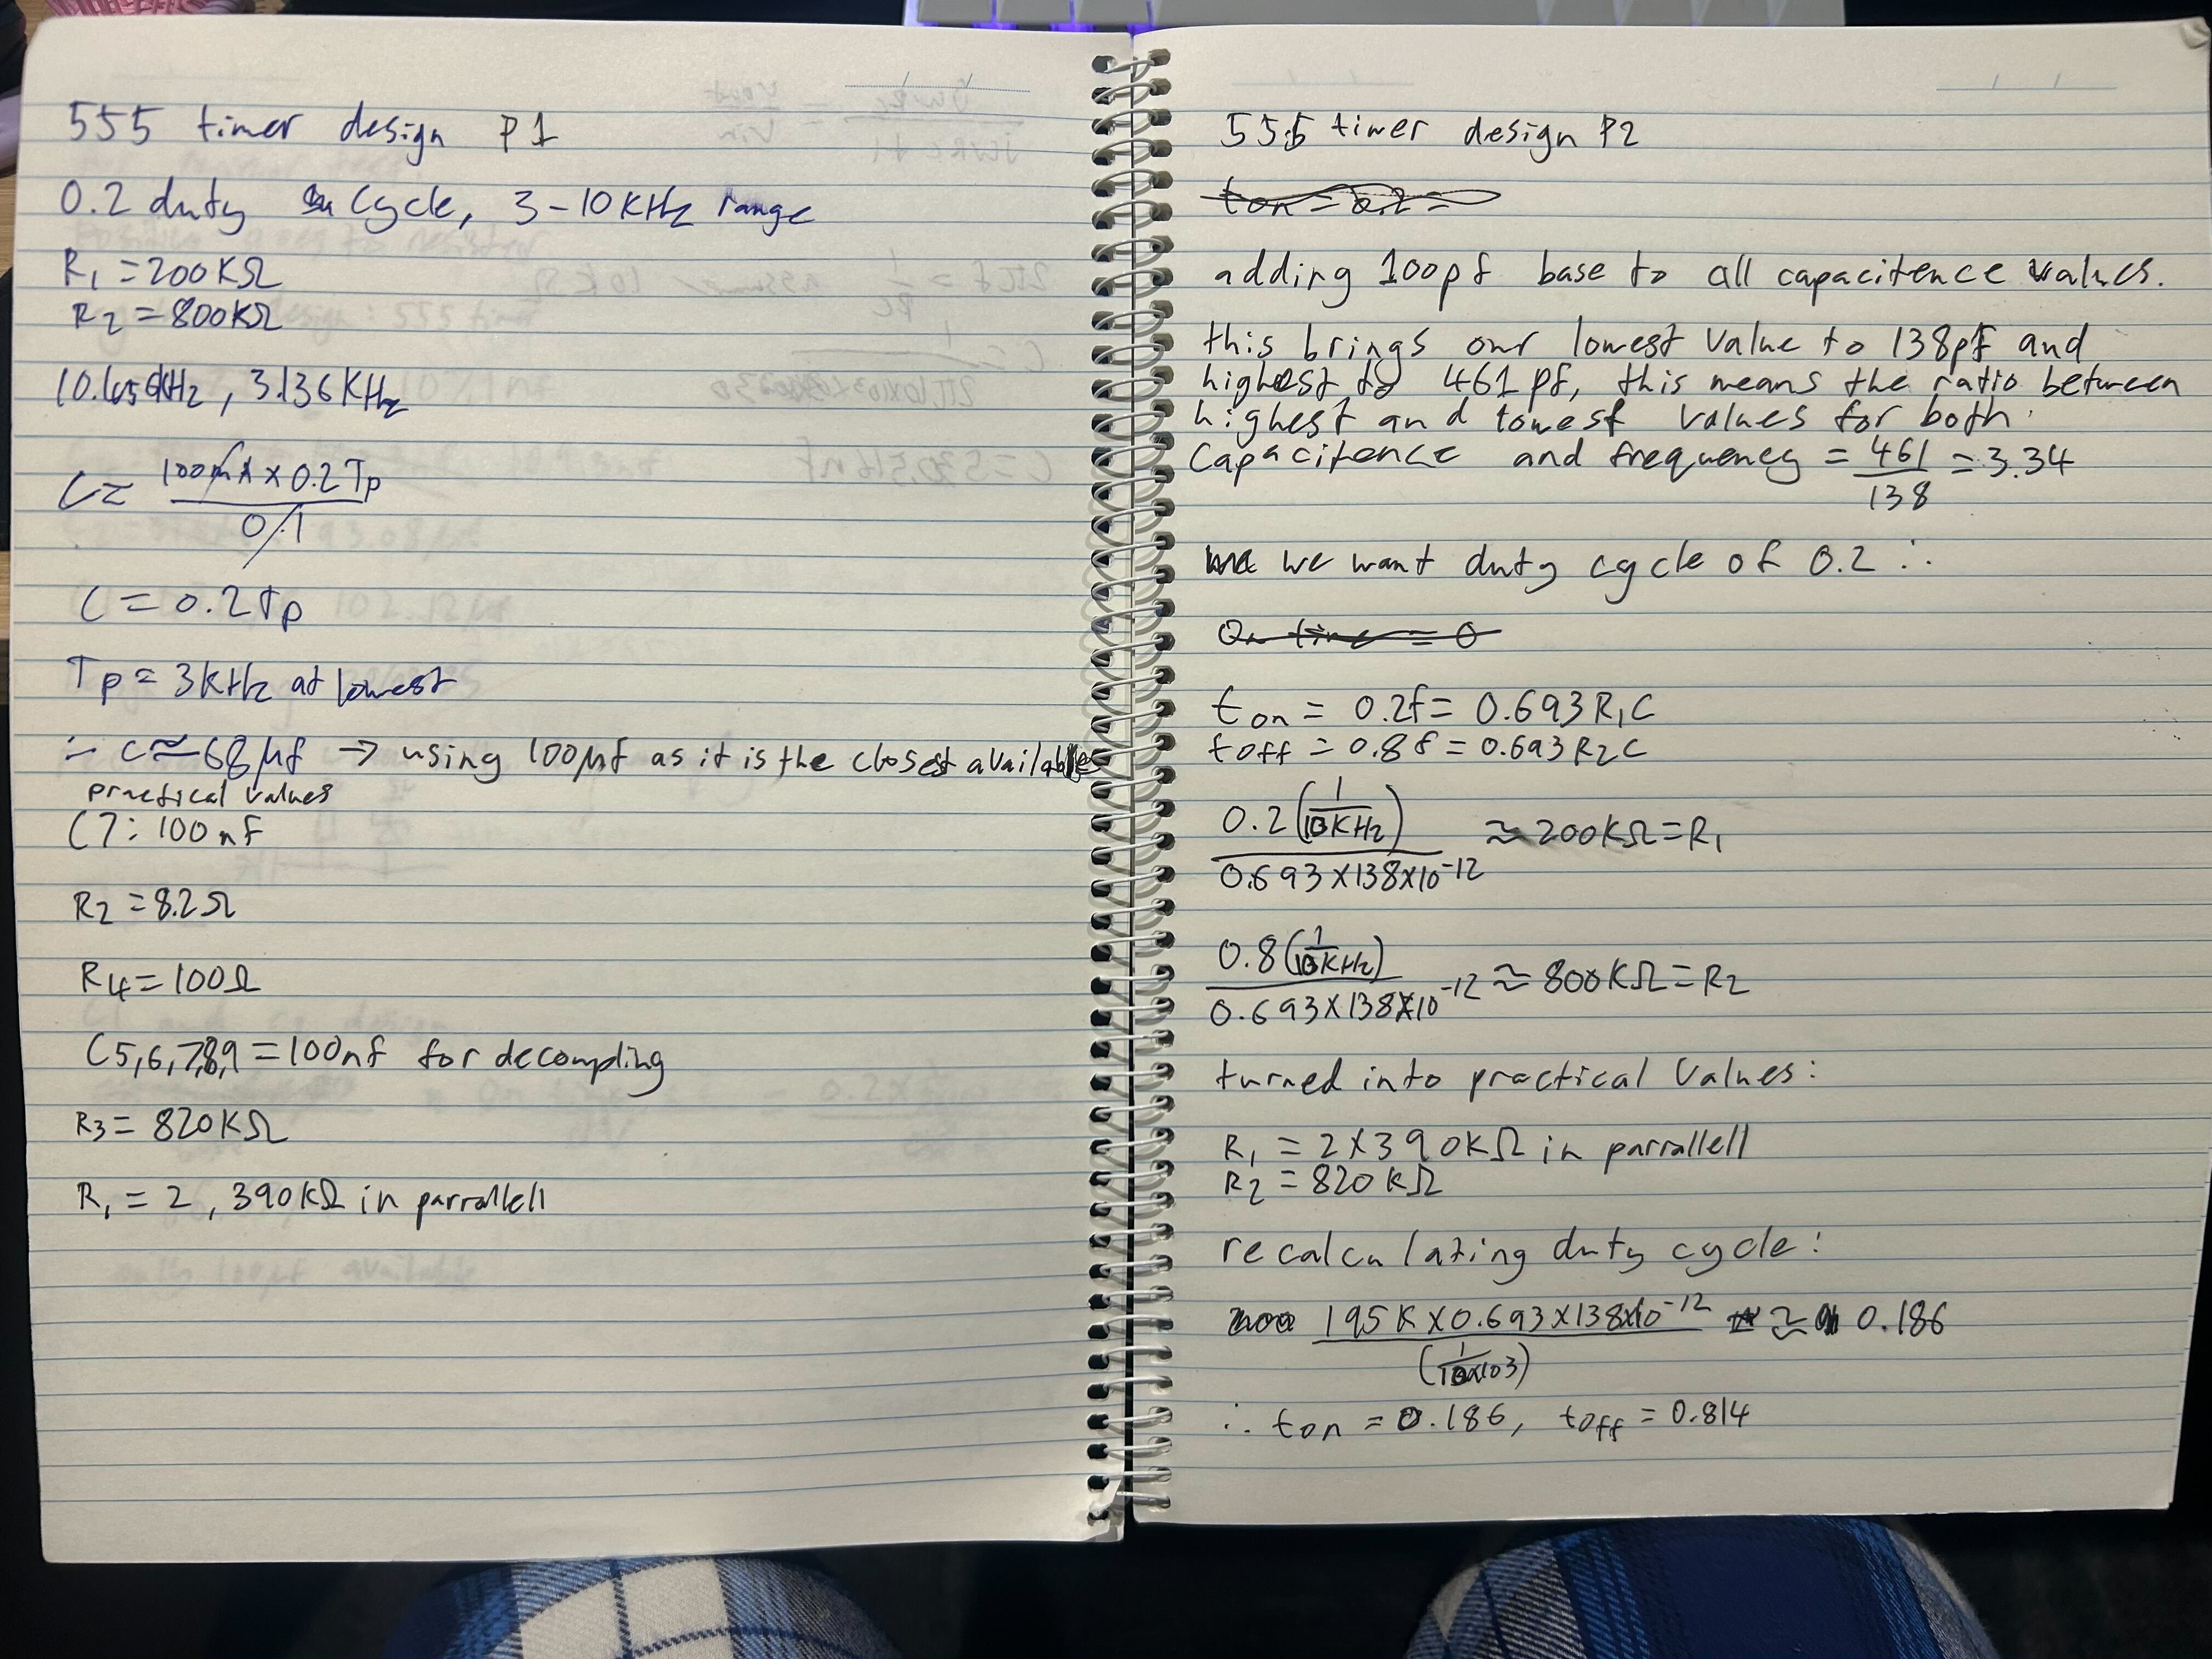 555 timer design P1
0.2 duty cycle, 3-10KHz range
R1 = 200KΩ
R2 = 800KΩ
KHz, 3.136KHz
C = 100mA × 0.2Tp
0.1
C = 0.2Tp
Tp = 3KHz at lowest
∴ C ≈ 68μf → using 100μf as it is the closest available
practical values
C7: 100nF
R2 = 8.2Ω
R4 = 100Ω
C5,6,7,8,9 = 100nf for decoupling
R3 = 820KΩ
R1 = 2, 390KΩ in parrallell
555 timer design P2
ton = 0.2 =
adding 100pf base to all capacitence values.
this brings our lowest value to 138pf and
highest to 461pf, this means the ratio between
highest and lowest values for both
capacitence and frequency = 461/138 = 3.34
we want duty cycle of 0.2 ∴
On time = 0
ton = 0.2f = 0.693R1C
toff = 0.8f = 0.693R2C
0.2(1/10KHz) ≈ 200KΩ = R1
0.693×138×10^-12
0.8(1/10KHz) ≈ 800KΩ = R2
0.693×138×10^-12
turned into practical values:
R1 = 2×390KΩ in parrallell
R2 = 820KΩ
recalculating duty cycle:
195K×0.693×138×10^-12 ≈ 0.186
(1/10×103)
∴ ton = 0.186, toff = 0.814